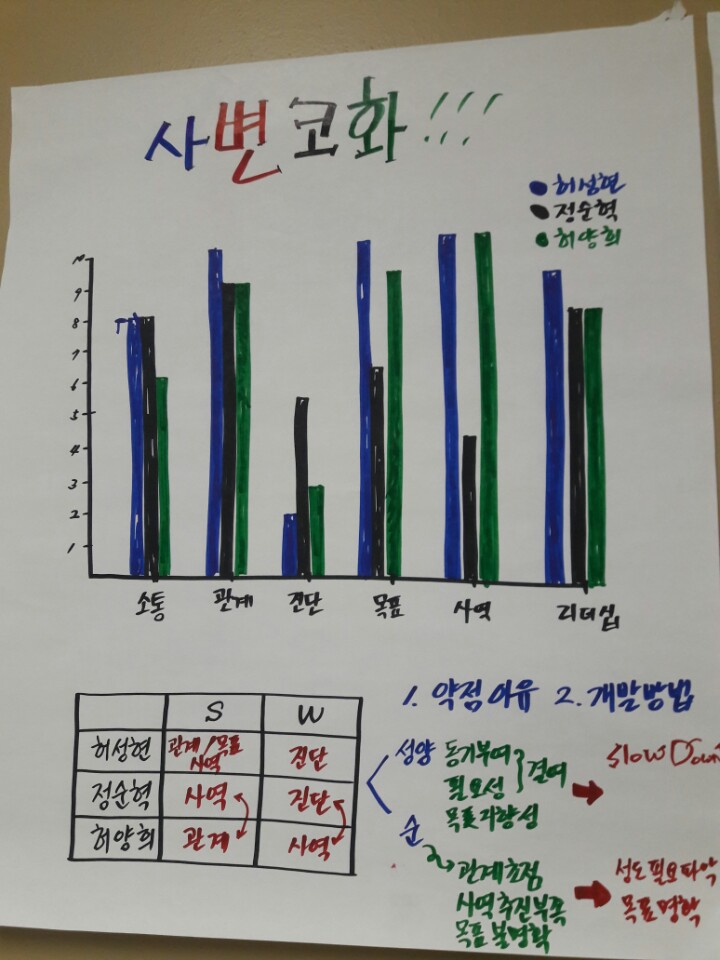 사변코화!!!
허성현
정순혁
허양희
10
9
8
7
6
5
4
3
2
1
소통 관계 진단 목표 사역 리더십
S W
허성현 관계/목표 사역 진단
정순혁 사역 진단
허양희 관계 사역
1. 약점이유 2. 개발방법
성양 동기부여
필요성 결여
목표지향성
Slow Down
순
관계초점
사역추진부족
목표불명확
성도필요파악
목표명확